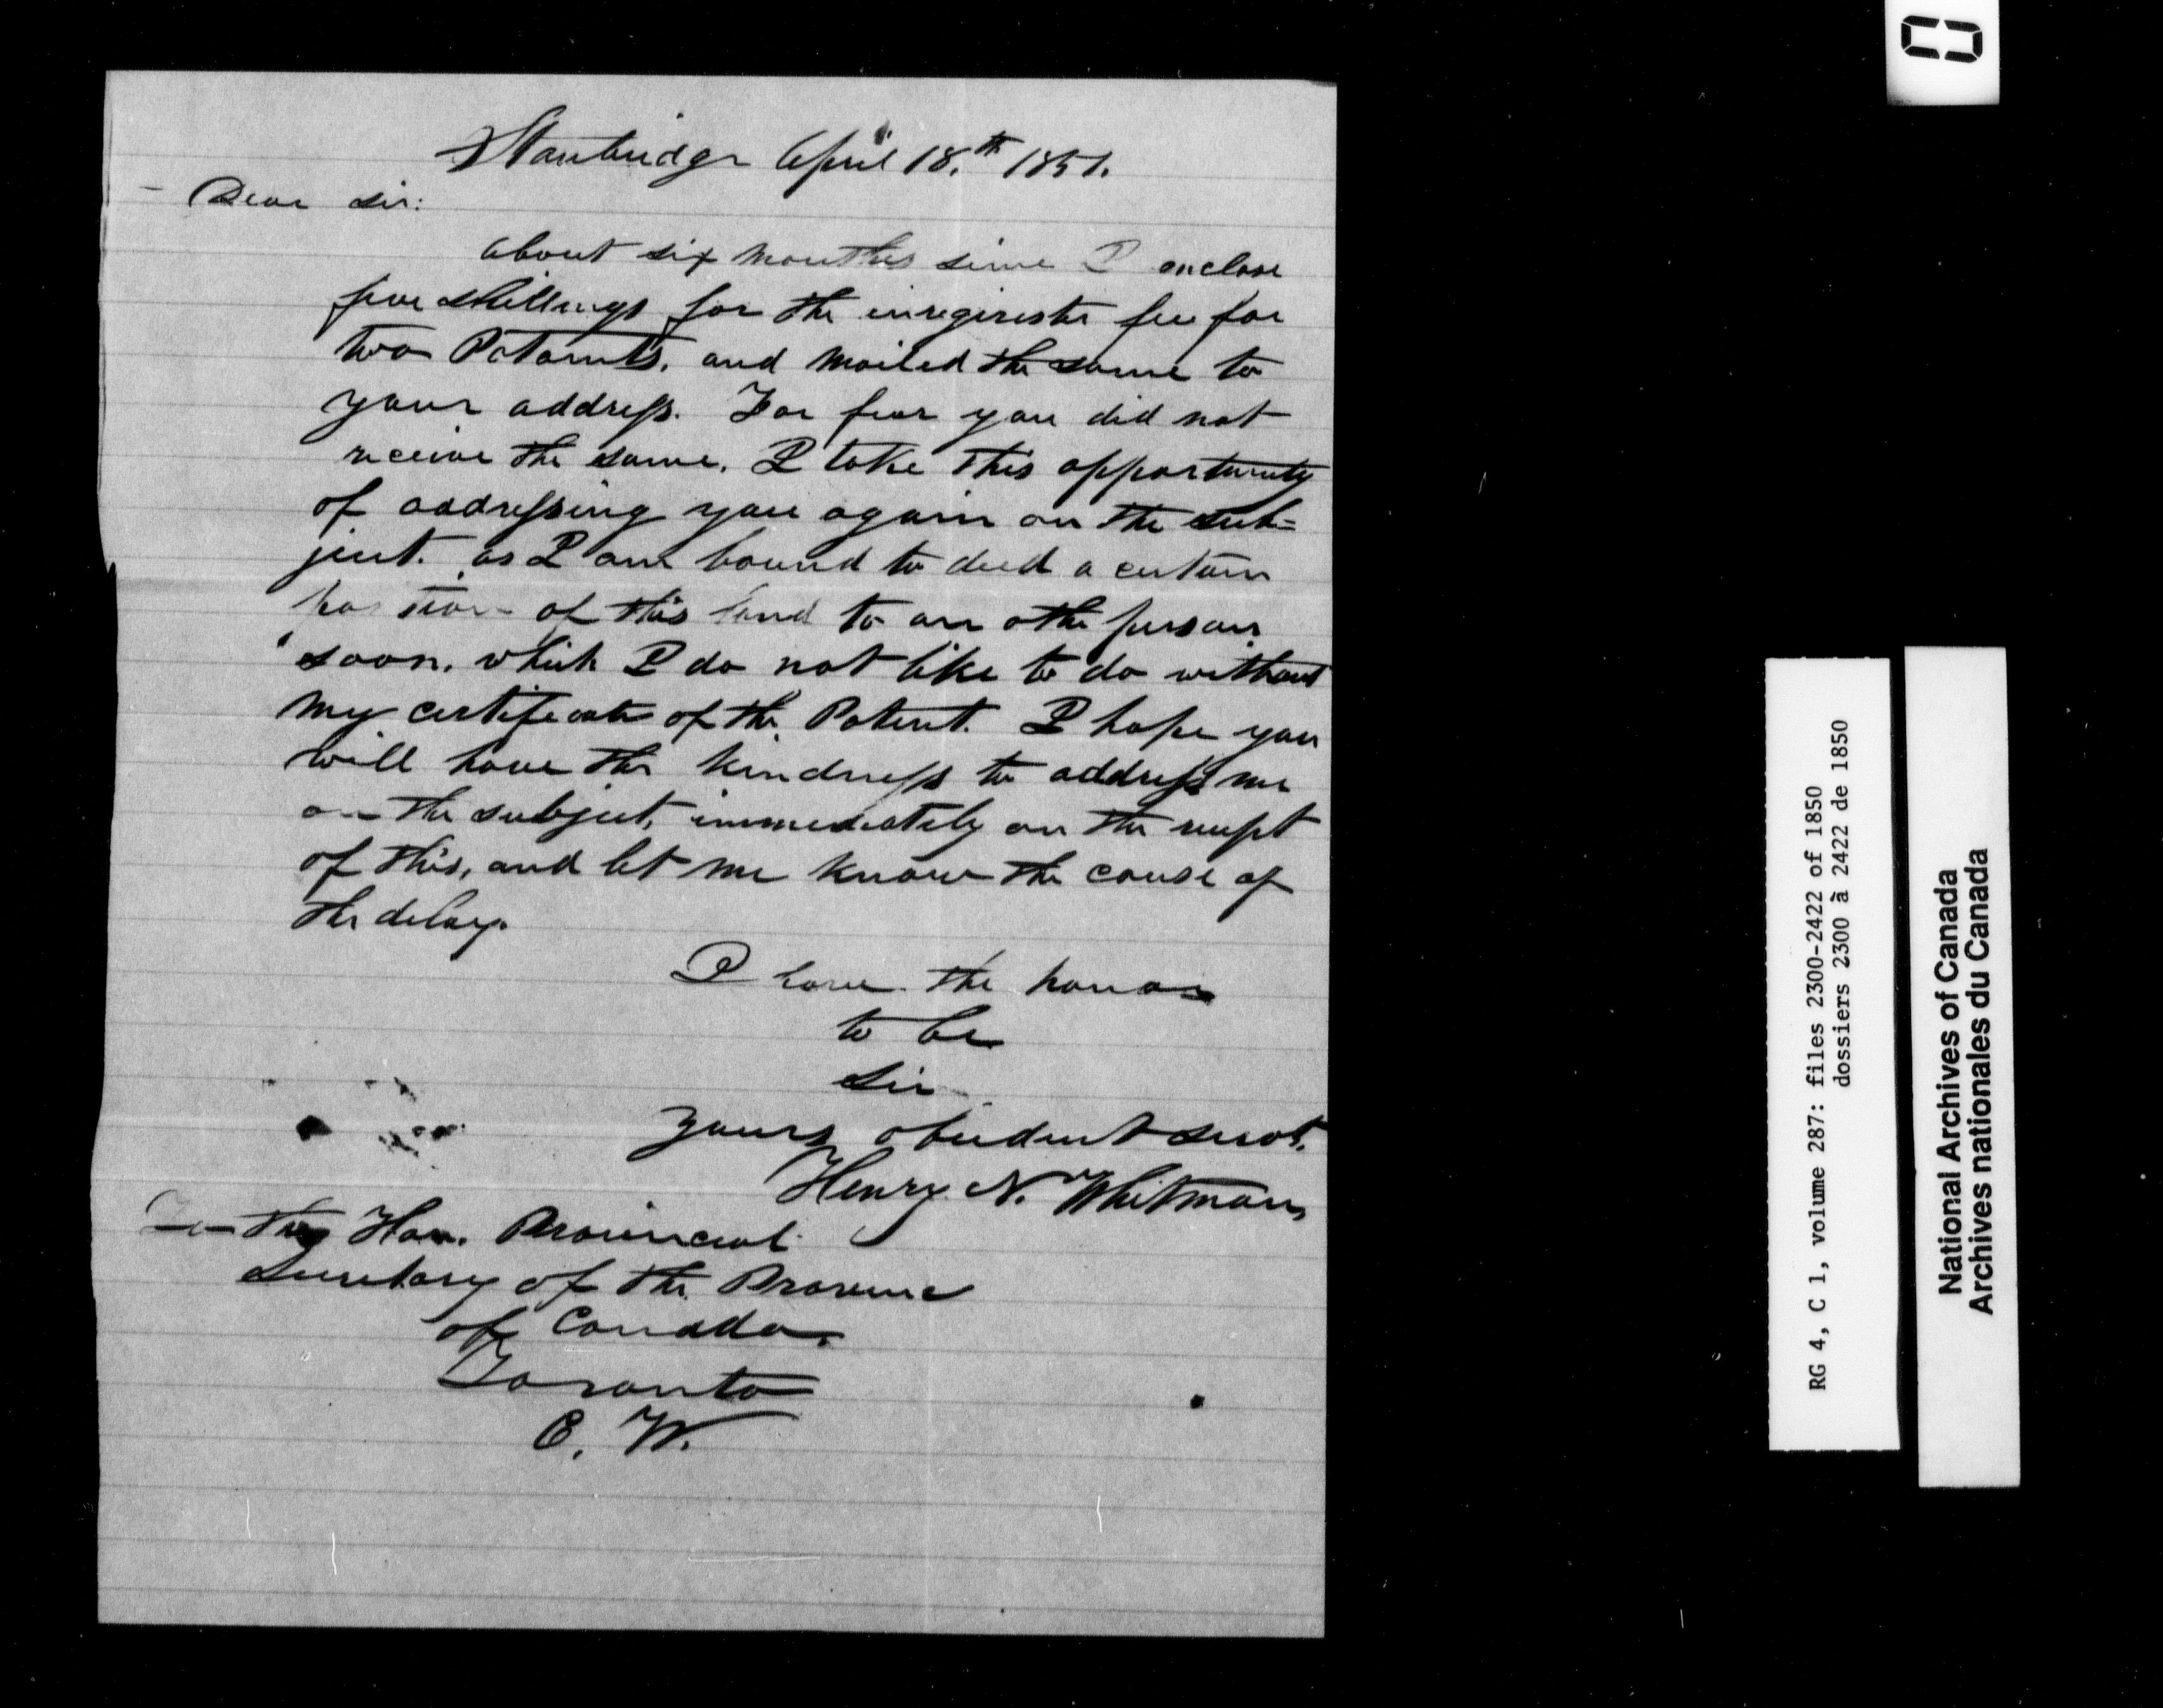 Stanbridge April 18.th 1851.
Dear Sir:
About six months since I enclose
five shillings for the enregirester fee for
two Patants, and mailed the same to
your address. For fear you did not
receive the same, I take this opportunity
of addressing you again on the sub=
ject. as I am bound to deed a certain
portion of this land to an othe person
soon, which I do not like to do without
my certificate of the Patent. I hope you
will have the kindness to address me
on the subject, immediately on the receipt
of this, and let me know the cause of
the delay.
I have the honor
to be
Sir
Yours obedient Servt.
Henry N. Whitman
To the Hon. Provincial
Secretary of the Province
of Canada,
Toronto
C. W.
RG 4, C 1, volume 287: files 2300-2422 of 1850
dossiers 2300 à 2422 de 1850
National Archives of Canada
Archives nationales du Canada